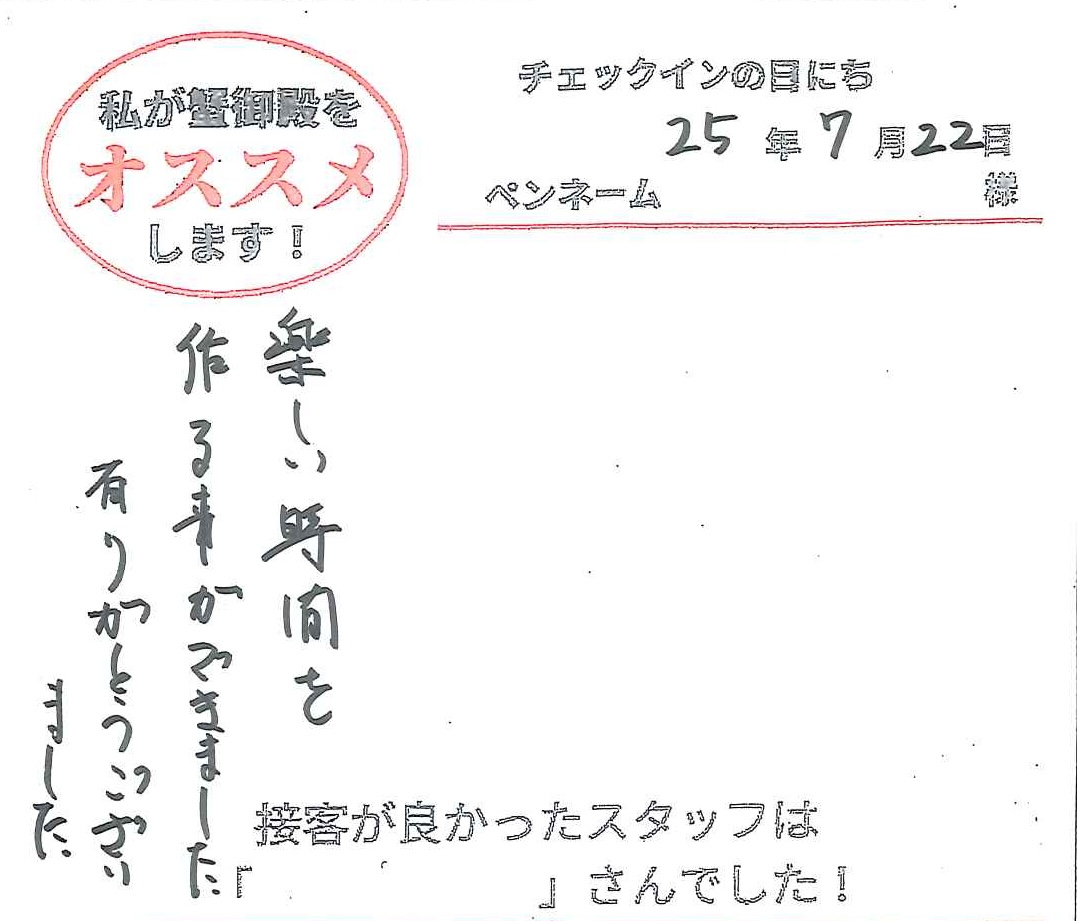 私が蟹御殿を
オススメ
します!
チェックインの日にち
25年7月22日
ペンネーム 様
楽しい時間を
作る事ができました
有りがとうござい
ました
接客が良かったスタッフは
「 」さんでした!